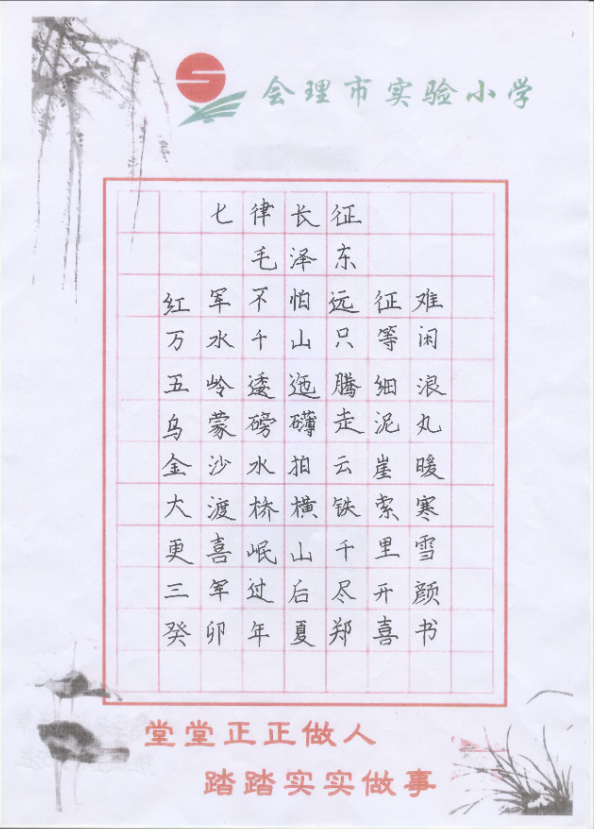 会理市实验小学
七律长征
毛泽东
红军不怕远征难
万水千山只等闲
五岭逶迤腾细浪
乌蒙磅礴走泥丸
金沙水拍云崖暖
大渡桥横铁索寒
更喜岷山千里雪
三军过后尽开颜
癸卯年夏郑喜书
堂堂正正做人
踏踏实实做事